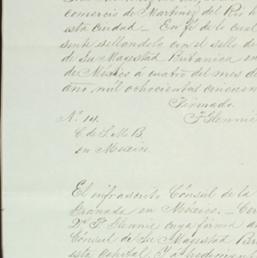 comercio de Martinez del Rio h
esta ciudad — En fé de lo cual
sente sellandolo con el sello de
de Su Magestad Britanica en
de Mexico a cuatro del mes de
año mil ochocientos cincuen
Firmado
Nº 14. F. Glennie
C. de S. M. B.
en Mexico
El infrascrito Cónsul de la
Granada en México — Cer
Dn. F. Glennie cuya firma
Cónsul de Su Magestad
esta Capital